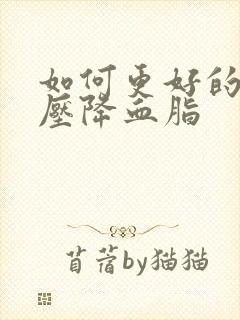 如何更好的
壓降血脂
苜蓿by猫猫